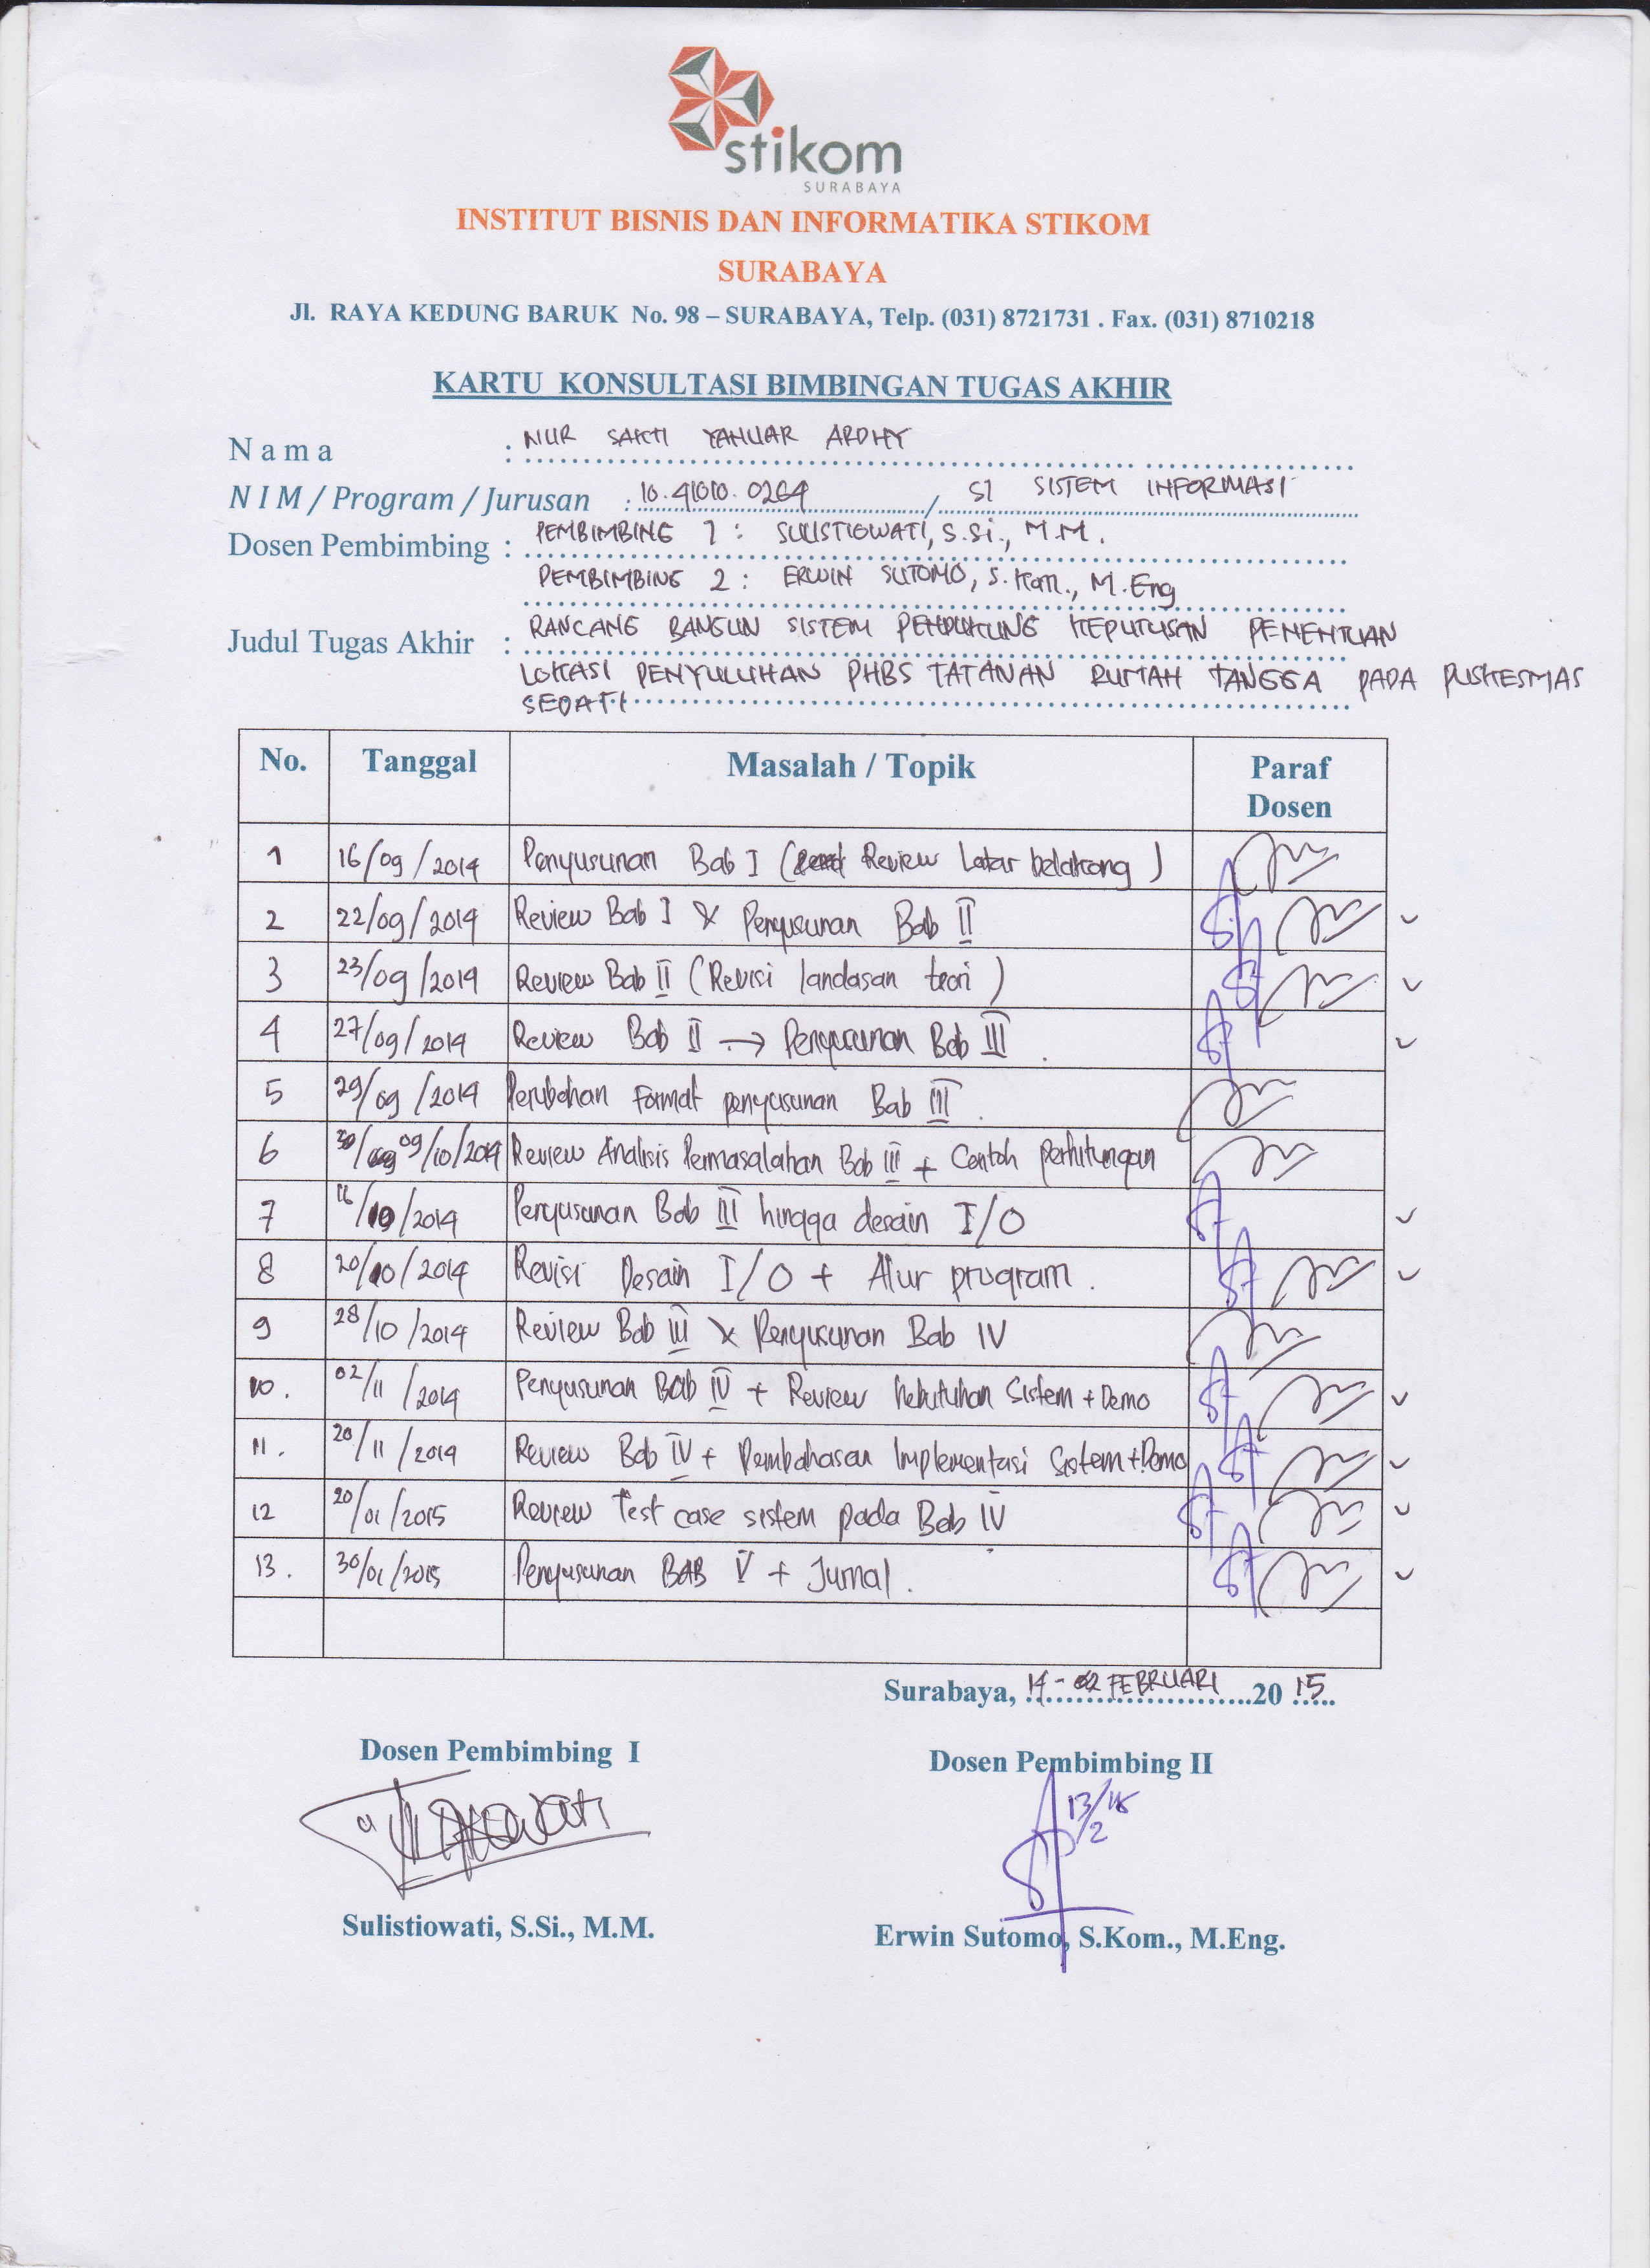 stikom
SURABAYA
INSTITUT BISNIS DAN INFORMATIKA STIKOM
SURABAYA
Jl. RAYA KEDUNG BARUK No. 98 – SURABAYA, Telp. (031) 8721731 . Fax. (031) 8710218
KARTU KONSULTASI BIMBINGAN TUGAS AKHIR
N a m a : NUR SAKTI YANUAR ARDHY
N I M / Program / Jurusan : 10.41010.0264 / S1 SISTEM INFORMASI
Dosen Pembimbing : PEMBIMBING 1 : SULISTIOWATI, S.Si., M.M.
PEMBIMBING 2 : ERWIN SUTOMO, S.Kom., M.Eng
Judul Tugas Akhir : RANCANG BANGUN SISTEM PENDUKUNG KEPUTUSAN PENENTUAN
LOKASI PENYULUHAN PHBS TATANAN RUMAH TANGGA PADA PUSKESMAS
SEDATI
No. Tanggal Masalah / Topik Paraf Dosen
1 16/09/2014 Penyusunan Bab I ( Review Latar belakang )
2 22/09/2014 Review Bab I & Penyusunan Bab II
3 23/09/2014 Review Bab II (Revisi landasan teori )
4 27/09/2014 Review Bab II → Penyusunan Bab III .
5 29/09/2014 Perubahan Format penyusunan Bab III .
6 30/ 09/10/2014 Review Analisis Permasalahan Bab III + Contoh perhitungan
7 16/10/2014 Penyusunan Bab III hingga desain I/O
8 20/10/2014 Revisi Desain I/O + Alur program .
9 28/10/2014 Review Bab III & Penyusunan Bab IV
10. 02/11/2014 Penyusunan BAB IV + Review Kebutuhan Sistem + Demo
11. 20/11/2014 Review Bab IV + Pembahasan Implementasi Sistem + Demo
12 20/01/2015 Review Test case sistem pada Bab IV
13. 30/01/2015 Penyusunan BAB V + Jurnal .
Surabaya, 14 - FEBRUARI 20 15
Dosen Pembimbing I Dosen Pembimbing II
13/2 15
Sulistiowati, S.Si., M.M. Erwin Sutomo, S.Kom., M.Eng.